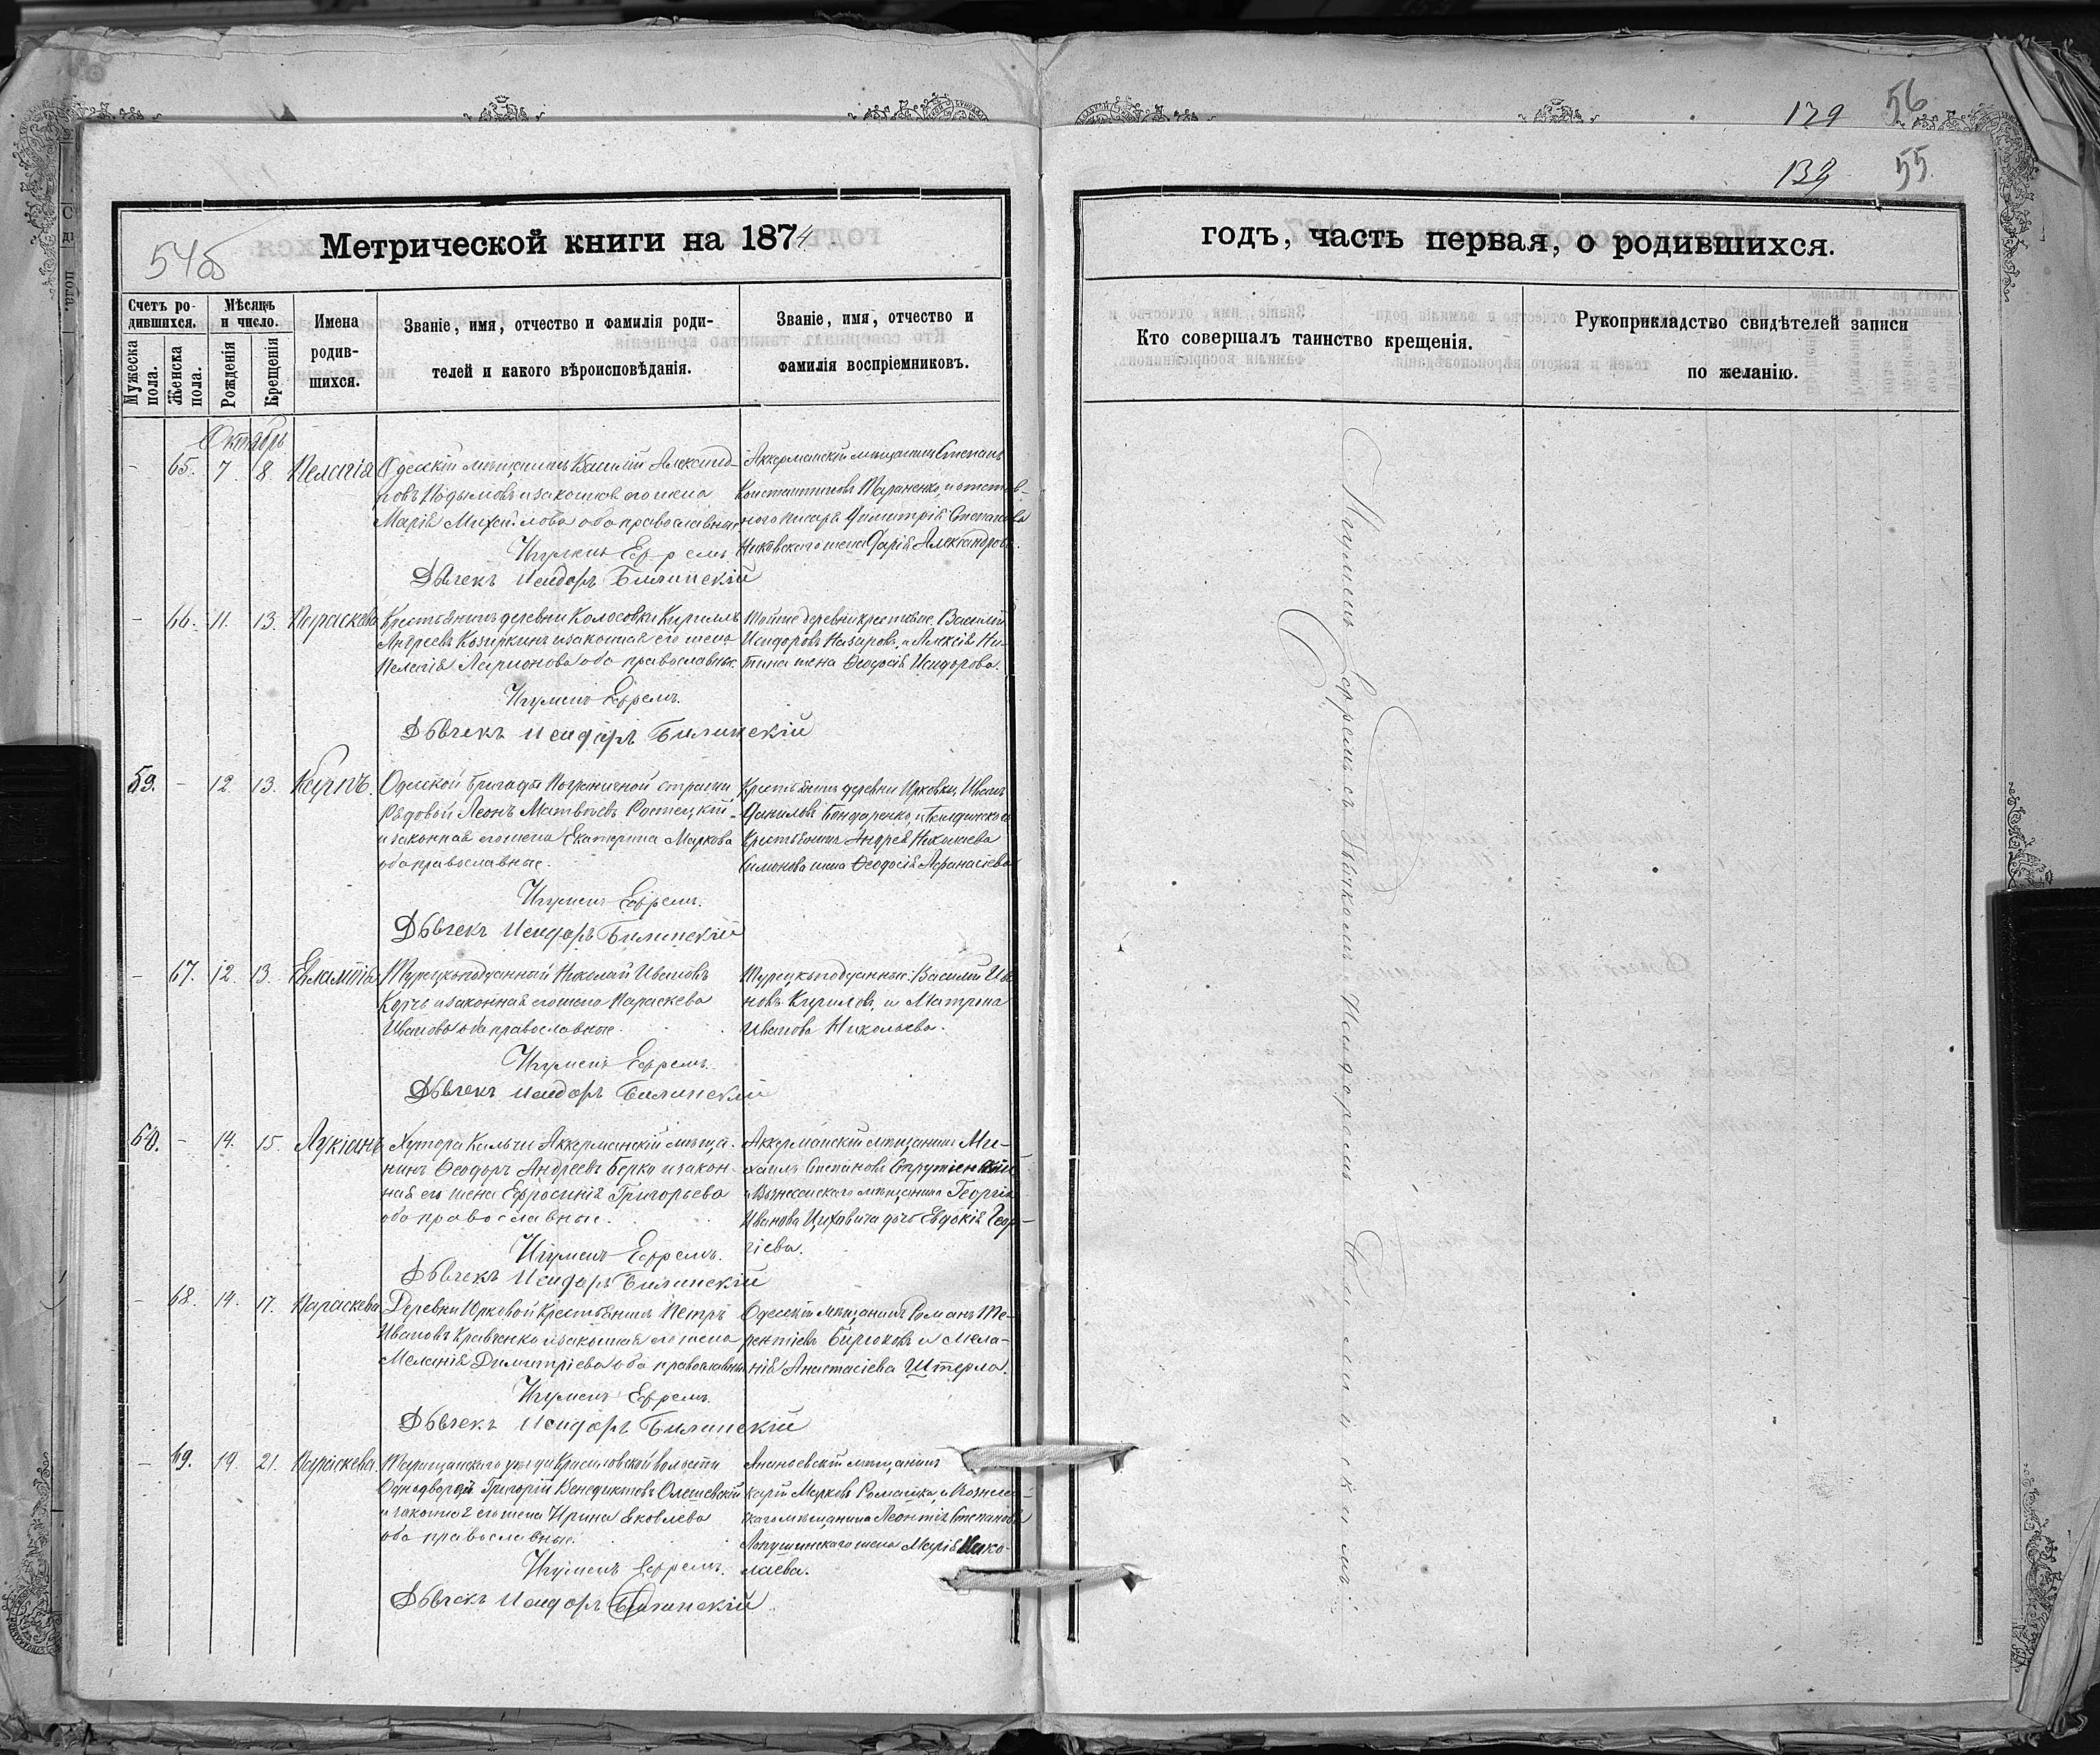 56
129
55
139
54об
Метрической книги на 1874
годъ, часть первая, о родившихся.
Счетъ родившихся.
Мужеска пола.
Женска пола.
Мѣсяцъ и число.
Рожденія
Крещенія
Имена родившихся.
Званіе, имя, отчество и фамилія роди-
телей и какого вѣроисповѣданія.
Званіе, имя, отчество и
фамилія воспріемниковъ.
Кто совершалъ таинство крещенія.
Рукоприкладство свидѣтелей записи
по желанію.
Октябрь
- 65. 7. 8. Пелагія
Одесскій мѣщанинъ Василій Александ-
ровъ и законная его жена
Марія Михайлова оба православные
Аккерманскій мѣщанинъ Степанъ
Константиновъ Тараненко, и отстав-
ного писаря Димитрія Степанова
жена Дарія Александрова.
Игуменъ Ефремъ
Дьячекъ Исидоръ Билинскій
- 66. 11. 13. Параскева
Крестьянинъ деревни Колосовки Кириллъ
Андреевъ и законная его жена
Пелагія Ларионова оба православные.
Тойже деревни крестьяне Василій
Исидоровъ Назаровъ, и Алексія Ни-
тина жена Ѳеофсія Исидорова.
Игуменъ Ефремъ.
Дьячекъ Исидоръ Билинскій
59. - 12. 13. Карпъ.
Одесской бригады Пограничной стражи
Рядовой Леонъ Матвѣевъ
и законная его жена Екатерина Маркова
оба православные.
Крестьянинъ деревни Юрковки, Иванъ
Даниловъ Бондаренко, и
Крестьянина Андрея Николаева
Симонова жена Ѳеодосія Афанасіева
Игуменъ Ефремъ.
Дьячекъ Исидоръ Билинскій
- 67. 12. 13.
Турецкоподданный Николай Ивановъ
и законная его жена Параскева
Иванова оба православные.
Турецкоподданные: Василій Ива
новъ Кириловъ, и Матрона
Иванова Николаева.
Игуменъ Ефремъ.
Дьячекъ Исидоръ Билинскій
60. - 14. 15. Лукіанъ
Хутора Кальчи Аккерманскій мѣща-
нинъ Ѳеодоръ Андреевъ Берко и закон-
ная его жена Ефросинія Григорьева
оба православные.
Аккерманскій мѣщанинъ Ми-
хаилъ Степановъ
и Вознесенскаго мѣщанина Георгія
Иванова дочь Евдокія Геор-
гіева.
Игуменъ Ефремъ.
Дьячекъ Исидоръ Билинскій
- 68. 14. 17. Параскева
Деревни Юрковой Крестьянинъ Петръ
Ивановъ Кравченко и законная его жена
Меланія Димитріева оба православные
Одесскій мѣщанинъ Романъ Те-
рентіевъ Бирюковъ и Мела-
нія Анастасіева Штерла.
Игуменъ Ефремъ.
Дьячекъ Исидоръ Билинскій
- 69. 19. 21. Параскева.
Таращанскаго уѣзда волости
Однодворецъ Григорій Венедиктовъ Олешевскій
и законная его жена Ирина Яковлева
оба православные.
Ананьевскій мѣщанинъ
Марковъ Ромашка, и Вознесен-
скаго мѣщанина Леонтія Степанова
Лопушинскаго жена Марія Нико-
лаева.
Игуменъ Ефремъ.
Дьячекъ Исидоръ Билинскій
Игуменъ Ефремъ съ дьячкомъ Исидоромъ Билинскимъ.